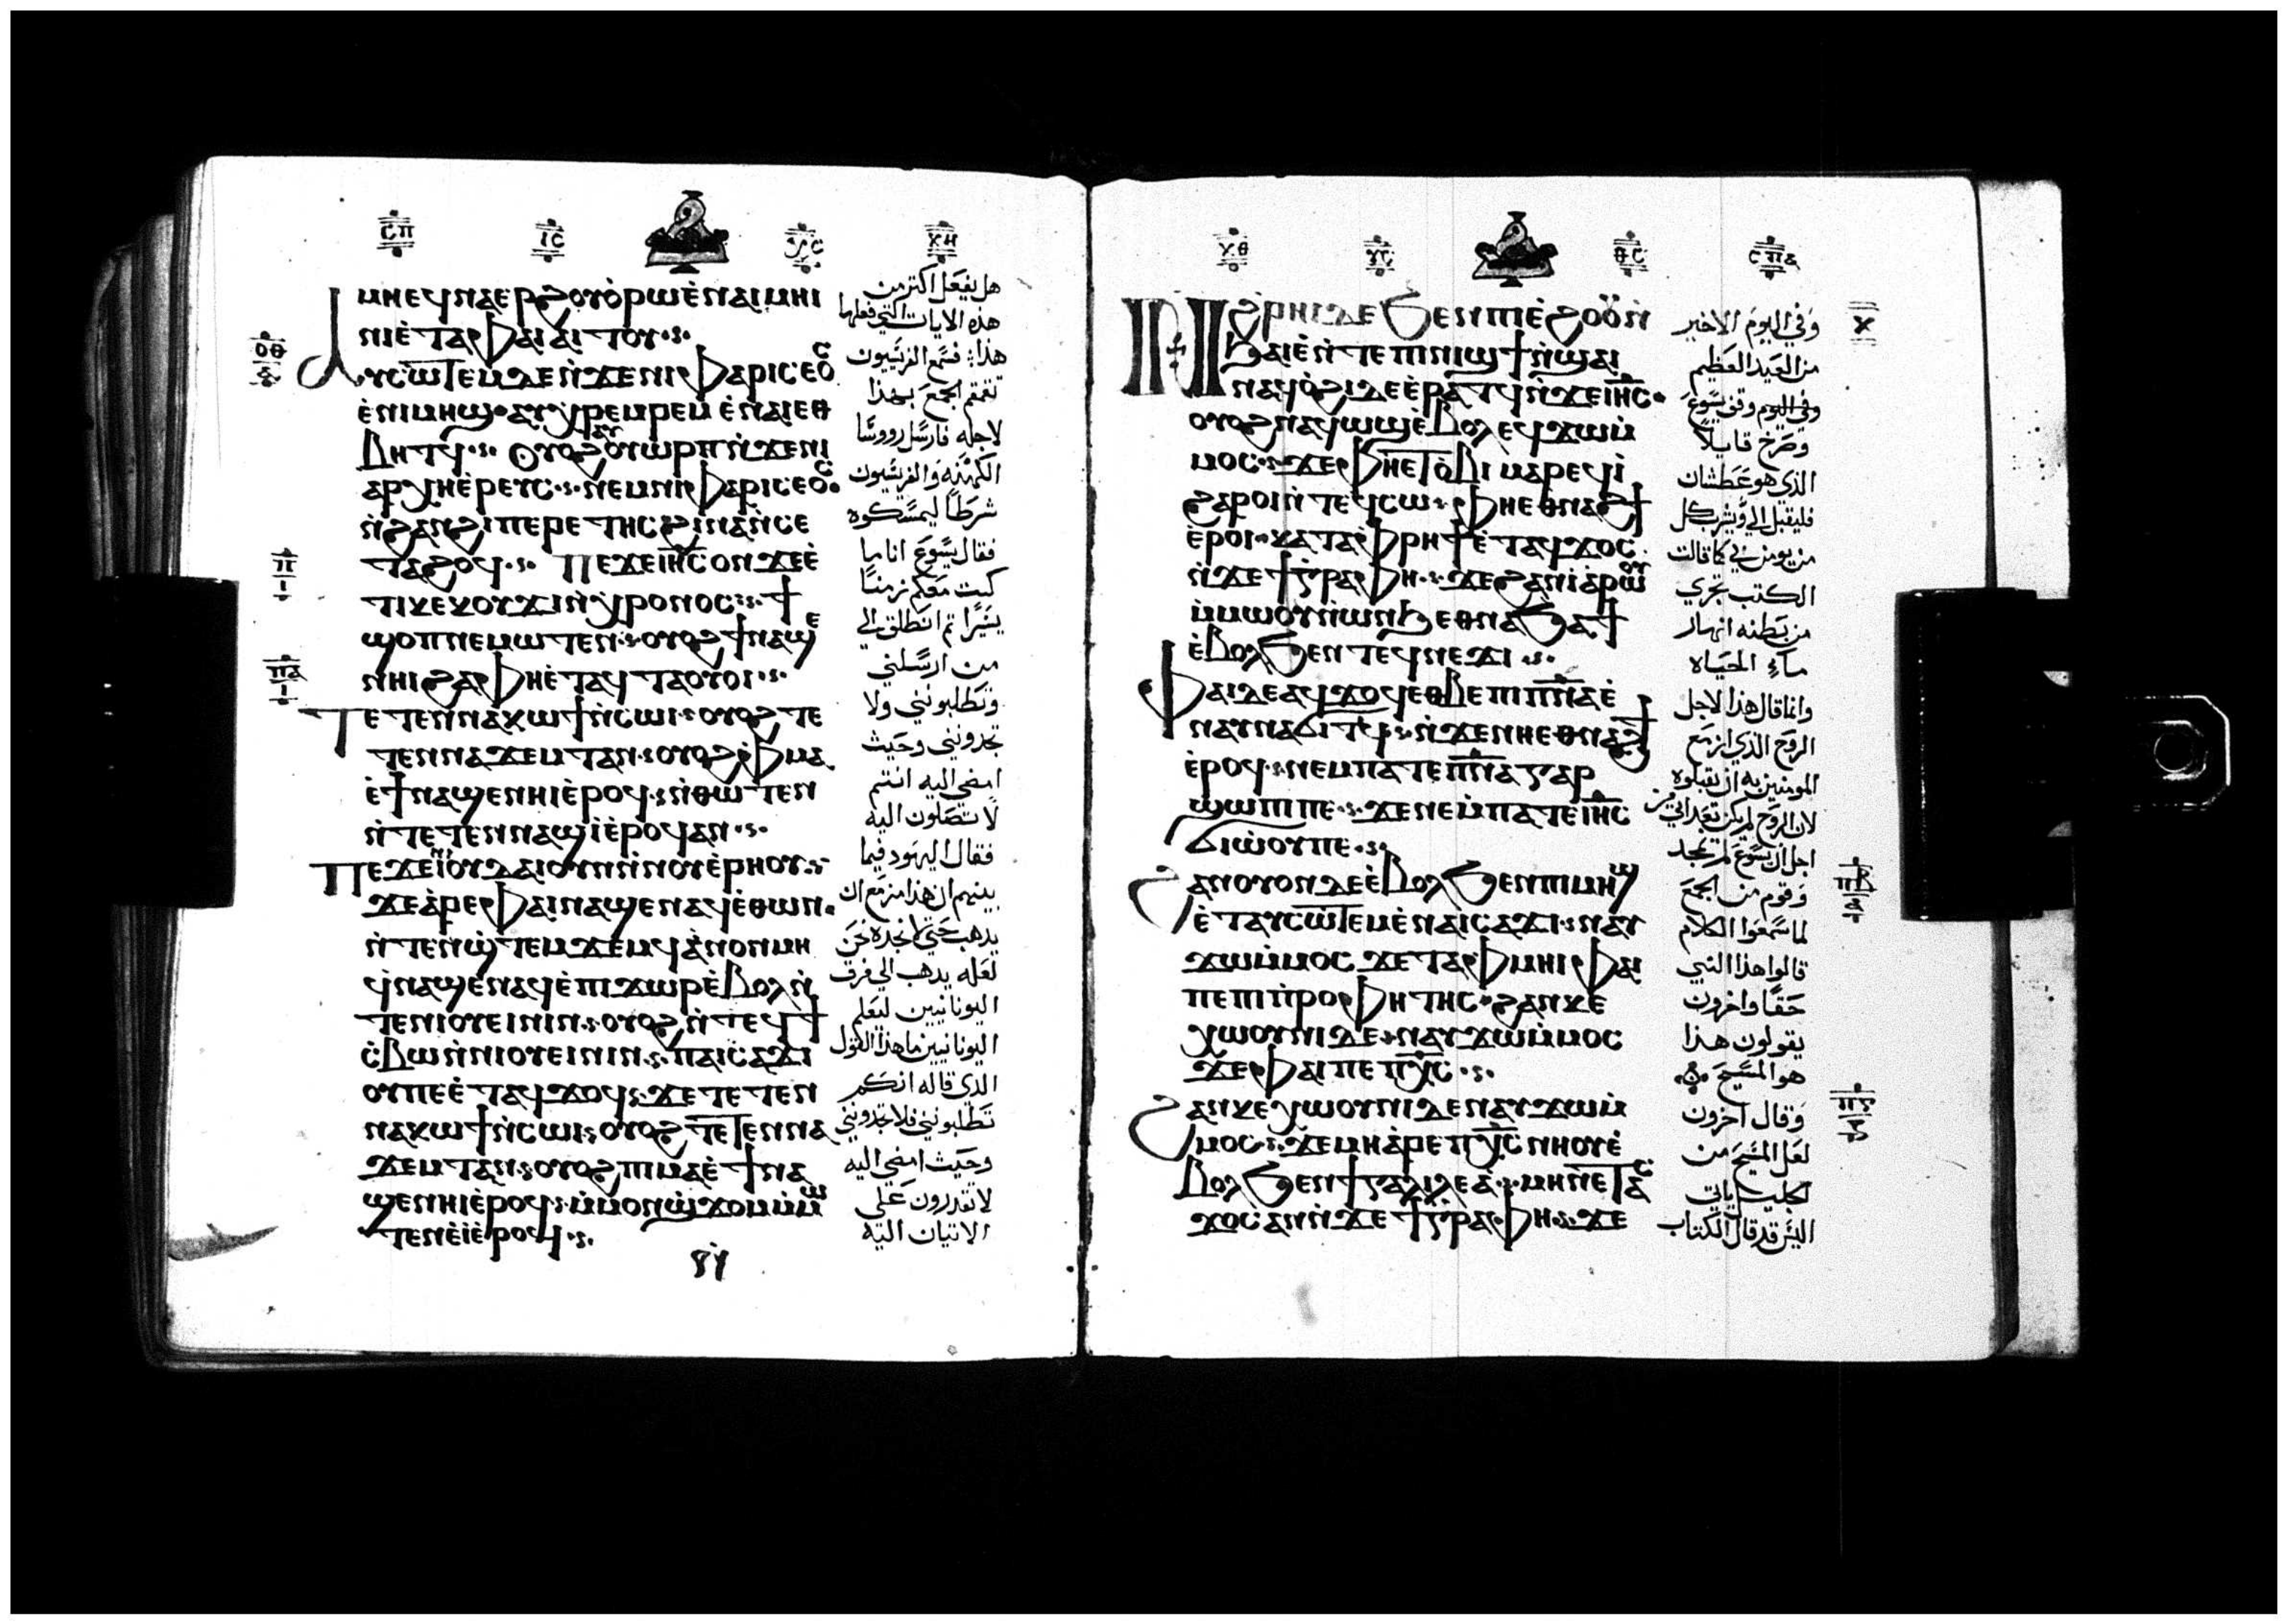 ⲥⲡ
ⲓⲥ
ⲭⲏ
ⲙⲏ ⲉϥⲛⲁⲉⲣϩⲟⲩⲟ̀ⲣⲱ ⲉ̀ⲛⲁⲓⲙⲏⲓ
ⲛⲓ ⲉ̀ⲧⲁ ⲫⲁⲓ ⲁⲓⲧⲟⲩ
ⲁⲩⲥⲱⲧⲉⲙ ⲇⲉ ⲛ̀ϫⲉ ⲛⲓⲫⲁⲣⲓⲥⲉⲟⲥ
ⲉ̀ⲡⲓⲙⲏϣ ⲁⲩⲭⲣⲉⲙⲣⲉⲙ ⲉ̀ⲛⲁⲓ ⲉⲑ
ⲃⲏⲧϥ ⲟⲩⲟϩ ⲁⲩⲟⲩⲱⲣⲡ ⲛ̀ϫⲉ ⲛⲓ
ⲁⲣⲭⲏⲉ̀ⲣⲉⲩⲥ ⲛⲉⲙ ⲛⲓⲫⲁⲣⲓⲥⲉⲟⲥ
ⲛ̀ϩⲁⲛϩⲓⲡⲉⲣⲉⲧⲏⲥ ϩⲓⲛⲁ ⲛ̀ⲥⲉ
ⲧⲁϩⲟϥ ⲡⲉϫⲉ ⲓⲏⲥ ⲟⲛ ϫⲉ ⲉ̀
ⲧⲓ ⲕⲉⲕⲟⲩϫⲓ ⲛ̀ⲭⲣⲟⲛⲟⲥ ϯ
ϣⲟⲡ ⲛⲉⲙⲱⲧⲉⲛ ⲟⲩⲟϩ ϯⲛⲁϣⲉ
ⲛⲏⲓ ϩⲁ ⲫⲏⲉ̀ⲧⲁϥⲧⲁⲟⲩⲟⲓ
ⲧⲉⲧⲉⲛⲛⲁⲕⲱϯ ⲛ̀ⲥⲱⲓ ⲟⲩⲟϩ ⲧⲉ
ⲧⲉⲛⲛⲁϫⲉⲙⲧ ⲁⲛ ⲟⲩⲟϩ ⲫⲙⲁ
ⲉ̀ϯⲛⲁϣⲉⲛⲏⲓ ⲉ̀ⲣⲟϥ ⲛ̀ⲑⲱⲧⲉⲛ
ⲛ̀ⲧⲉⲧⲉⲛⲛⲁϣⲓ̀ ⲉ̀ⲣⲟϥ ⲁⲛ
ⲡⲉϫⲉ ⲛⲓⲓⲟⲩⲇⲁⲓ ⲟⲩⲛ ⲛ̀ⲛⲟⲩⲉ̀ⲣⲏⲟⲩ
ϫⲉ ⲁ̀ⲣⲉ ⲫⲁⲓ ⲛⲁϣⲉⲛⲁϥ ⲉ̀ⲑⲱⲛ
ⲛ̀ⲧⲉⲛϣ̀ⲧⲉⲙϫⲉⲙϥ ⲁ̀ⲛⲟⲛ ⲙⲏ
ϥⲛⲁϣⲉⲛⲁϥ ⲉ̀ⲡⲓϫⲱⲣ ⲉ̀ⲃⲟⲗ ⲛ̀
ⲧⲉ ⲛⲓⲟⲩⲉⲓⲛⲓⲛ ⲟⲩⲟϩ ⲛ̀ⲧⲉϥϯ
ⲥ̀ⲃⲱ ⲛ̀ⲛⲓⲟⲩⲉⲓⲛⲓⲛ ⲡⲁⲓⲥⲁϫⲓ
ⲟⲩ ⲡⲉ ⲉ̀ⲧⲁϥϫⲟϥ ϫⲉ ⲧⲉⲧⲉⲛ
ⲛⲁⲕⲱϯ ⲛ̀ⲥⲱⲓ ⲟⲩⲟϩ ⲧⲉⲧⲉⲛⲛⲁ
ϫⲉⲙⲧ ⲁⲛ ⲟⲩⲟϩ ⲡⲓⲙⲁ ⲉ̀ϯⲛⲁ
ϣⲉⲛⲏⲓ ⲉ̀ⲣⲟϥ ⲙ̀ⲙⲟⲛ ϣ̀ϫⲟⲙ ⲙ̀ⲙⲱ
ⲧⲉⲛ ⲉ̀ⲓ̀ ⲉ̀ⲣⲟϥ
ⲟⲑ
ⲡ
ⲓ
ⲡⲁ
ⲓ
هل يفعل اكتر من
هذه الايات التي فعلها
هذا فسمع الفريسيون
تقمقم الجمع بهذا
لاجله فارسل رووسا
الكهنه والفريسيون
شرطا ليمسكوه
فقال يسوع انا ما
كنت معكم زمنا
يسيرا تم انطلق الي
من ارسلني
وتطلبونني ولا
تجدونني وحيث
امضي اليه انتم
لا تصلون اليه
فقال اليهود فيما
بينهم ان هذا مزمع ان
يدهب حتي لا نجده نحن
لعله يدهب الي فرق
اليونانيين ليعلم
اليونانيين ما هذا القول
الذي قاله انكم
تطلبونني فلا تجدونني
وحيث امضي اليه
لا تقدرون علي
الاتيان اليه
ⲭⲑ
ⲑⲥ
ⲥⲡⲁ
ⲛ̀ϩⲣⲏⲓ ⲇⲉ ϧⲉⲛ ⲡⲓⲉ̀ϩⲟⲟⲩ ⲛ̀
ϧⲁⲉ̀ ⲛ̀ⲧⲉ ⲡⲓⲛⲓϣϯ ⲛ̀ϣⲁⲓ
ⲛⲁϥⲟ̀ϩⲓ ⲇⲉ ⲉ̀ⲣⲁⲧϥ ⲛ̀ϫⲉ ⲓⲏⲥ
ⲟⲩⲟϩ ⲛⲁϥⲱϣ ⲉ̀ⲃⲟⲗ ⲉϥϫⲱ ⲙ̀
ⲙⲟⲥ ϫⲉ ⲫⲏⲉⲧⲟ̀ⲃⲓ ⲙⲁⲣⲉϥⲓ̀
ϩⲁⲣⲟⲓ ⲛ̀ⲧⲉϥⲥⲱ ⲫⲏⲉⲑⲛⲁϩϯ
ⲉ̀ⲣⲟⲓ ⲕⲁⲧⲁ ⲫⲣⲏϯ ⲉ̀ⲧⲁϥϫⲟⲥ
ⲛ̀ϫⲉ ϯⲅⲣⲁⲫⲏ ϫⲉ ϩⲁⲛⲓⲁ̀ⲣⲱⲟⲩ
ⲙ̀ⲙⲱⲟⲩ ⲛ̀ⲱⲛϧ ⲉⲑⲛⲁϧⲁϯ
ⲉ̀ⲃⲟⲗ ϧⲉⲛ ⲧⲉϥⲛⲉϫⲓ
ⲫⲁⲓ ⲇⲉ ⲁϥϫⲟϥ ⲉⲑⲃⲉ ⲡⲓⲡⲛⲁ ⲉ̀
ⲛⲁⲩⲛⲁϭⲓⲧϥ ⲛ̀ϫⲉ ⲛⲏⲉⲑⲛⲁϩϯ
ⲉ̀ⲣⲟϥ ⲛⲉⲙⲡⲁⲧⲉ ⲡⲛⲁ ⲅⲁⲣ
ϣⲱⲡⲓ ⲡⲉ ϫⲉ ⲛⲉⲙ̀ⲡⲁⲧⲉ ⲓⲏⲥ
ϭⲓⲱ̀ⲟⲩ ⲡⲉ
ϩⲁⲛⲟⲩⲟⲛ ⲇⲉ ⲉ̀ⲃⲟⲗ ϧⲉⲛ ⲡⲓⲙⲏϣ
ⲉ̀ⲧⲁⲩⲥⲱ̀ⲧⲉⲙ ⲉ̀ⲛⲁⲓⲥⲁϫⲓ ⲛⲁⲩ
ϫⲱ ⲙ̀ⲙⲟⲥ ϫⲉ ⲧⲁⲫⲙⲏⲓ ⲫⲁⲓ
ⲡⲉ ⲡⲓⲡ̀ⲣⲟⲫⲏⲧⲏⲥ ϩⲁⲛⲕⲉ
ⲭⲱⲟⲩⲛⲓ ⲇⲉ ⲛⲁⲩϫⲱ ⲙ̀ⲙⲟⲥ
ϫⲉ ⲫⲁⲓ ⲡⲉ ⲡⲭⲥ
ϩⲁⲛⲕⲉⲭⲱⲟⲩⲛⲓ ⲇⲉ ⲛⲁⲩϫⲱ ⲙ̀
ⲙⲟⲥ ϫⲉ ⲙⲏ ⲁ̀ⲣⲉ ⲡⲭⲥ ⲛⲏⲟⲩ ⲉ̀
ⲃⲟⲗ ϧⲉⲛ ϯⲅⲁⲗⲓⲗⲉⲁ̀ ⲙⲏ ⲛⲉⲧⲁⲥ
ϫⲟⲥ ⲁⲛ ⲛ̀ϫⲉ ϯⲅⲣⲁⲫⲏ ϫⲉ
وفي اليوم الاخير
من العيد العظيم
وفي اليوم وقف يسوع
وصرخ قايلا
الذي هو عطشان
فليقبل الي ويشرب كل
من يومن بي كما قالت
الكتب تجري
من بطنه انهار
ماء الحياه
وانما قال هذا لاجل
الروح الذي ازمع
المومنين به ان يقبلوه
لان الروح لم يكن
اجل ان يسوع لم تمجد
وقوم من الجمع
لما سمعوا الكلام
قالوا هذا النبي
حقا واخرون
يقولون هذا
هو المسيح
وقال اخرون
لعل المسيح من
الجليل ياتي
اليس قد قال الكتاب
ⲡⲃ